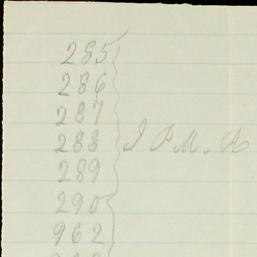 285
286
287
288 I P. M. R
289
290
962